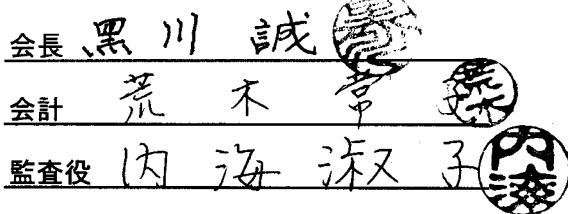 会長 黒川 誠
会計 荒木 常子
監査役 内海 淑子